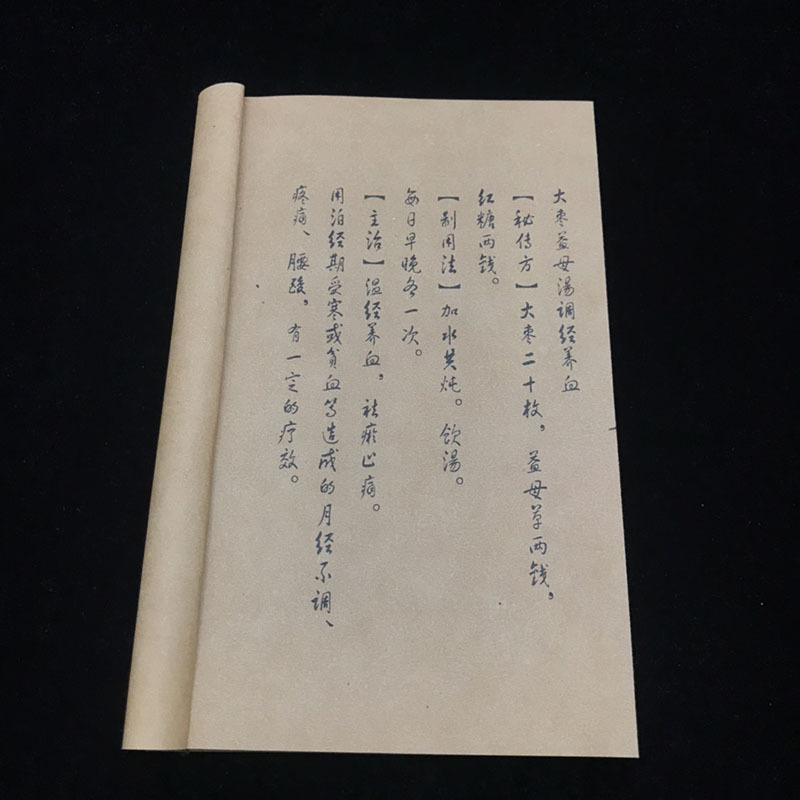 大枣益母汤调经养血
【秘传方】大枣二十枚，益母草两钱，
红糖两钱。
【制用法】加水共炖。饮汤。
每日早晚各一次。
【主治】温经养血，祛瘀止痛。
用治经期受寒或贫血等造成的月经不调、
疼痛、腰酸，有一定的疗效。